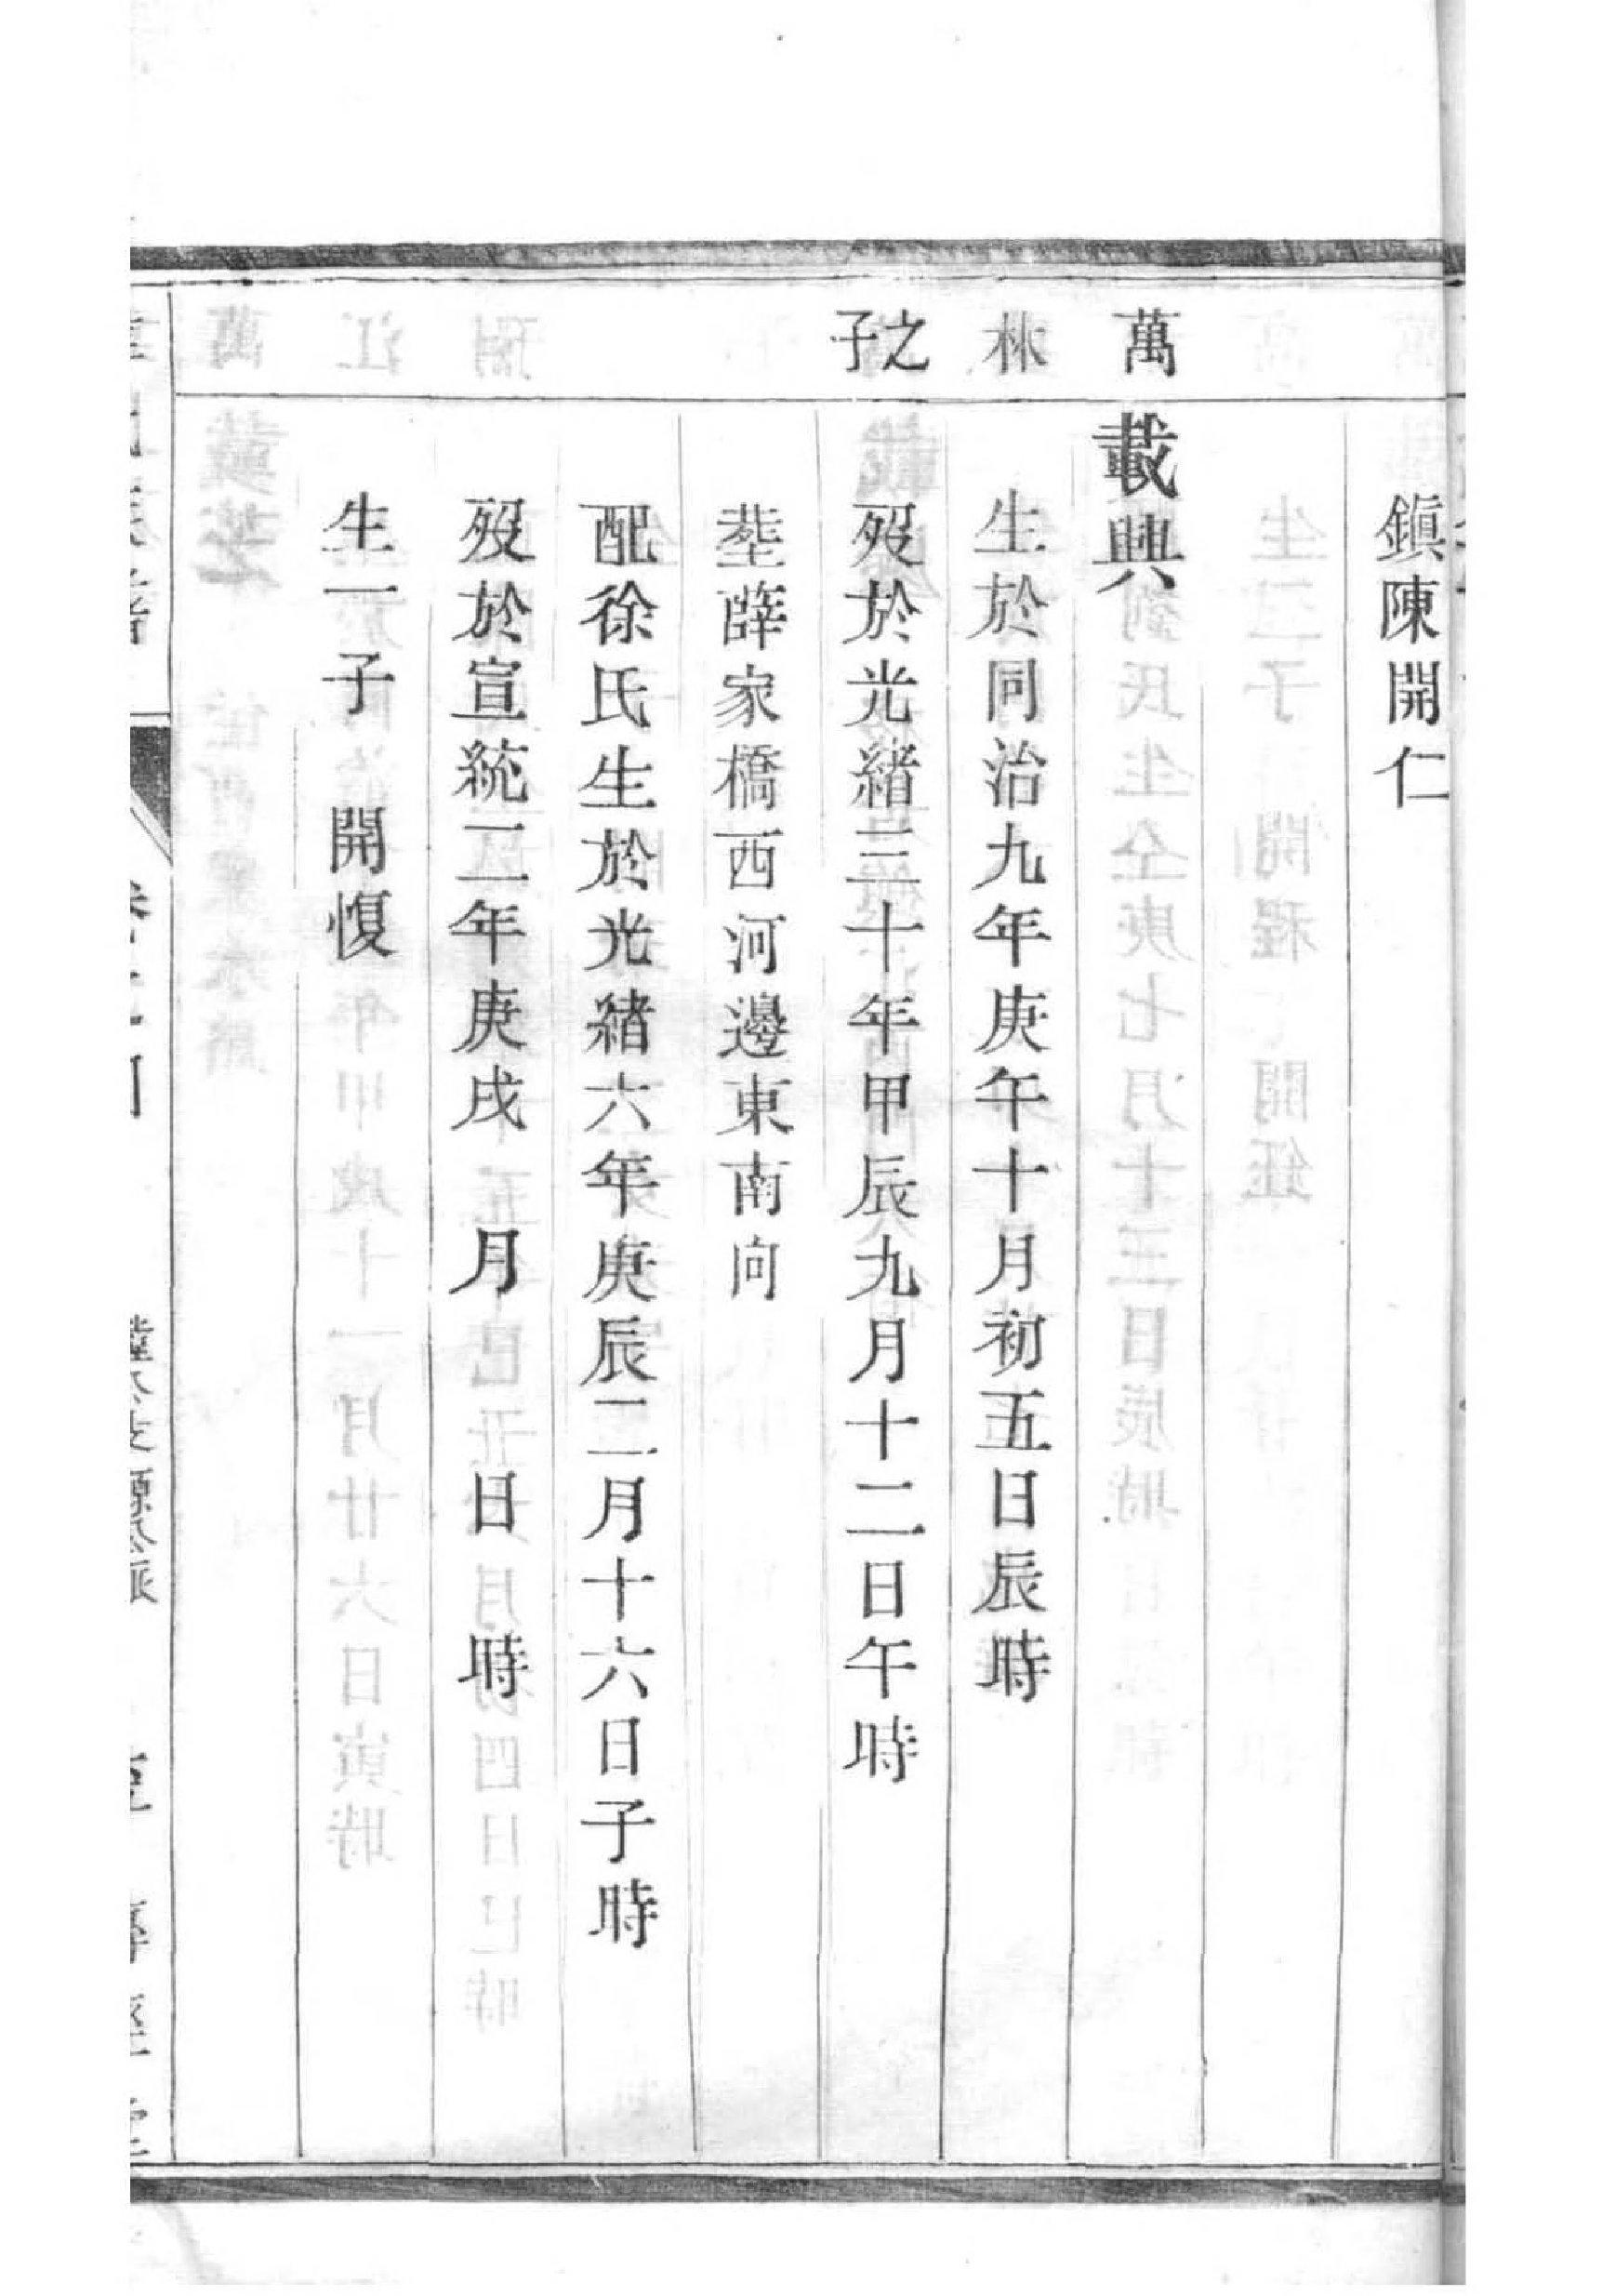 鎭陳開仁
萬
載興
林
生於同治九年庚午十月初五日辰時
之子
歿於光緒三十年甲辰九月十二日午時
塟薛家橋西河邊東南向
配徐氏生於光緒六年庚辰二月十六日子時
歿於宣統二年庚戌 月 日 時
生一子 開愎